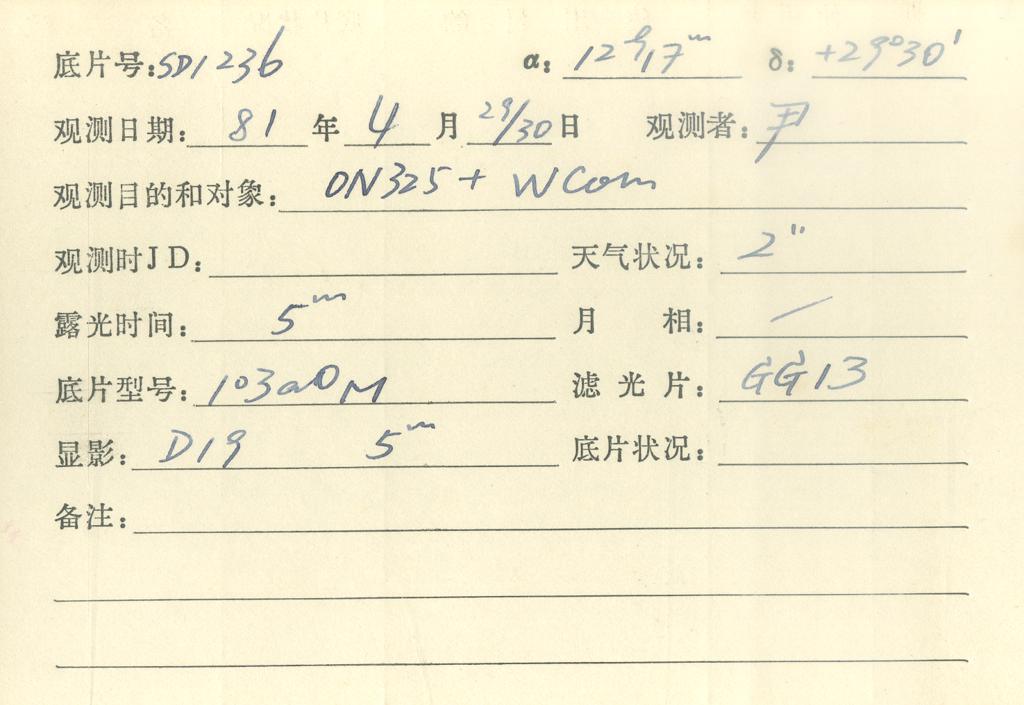 底片号:SD1236 α: 12ʰ17ᵐ δ: +29°30′
观测日期: 81 年 4 月 29/30 日 观测者: 尹
观测目的和对象: ON325 + W Com
观测时JD: 天气状况: 2″
露光时间: 5ᵐ 月 相: /
底片型号: 103aO M 滤光片: GG13
显影: D19 5ᵐ 底片状况:
备注: